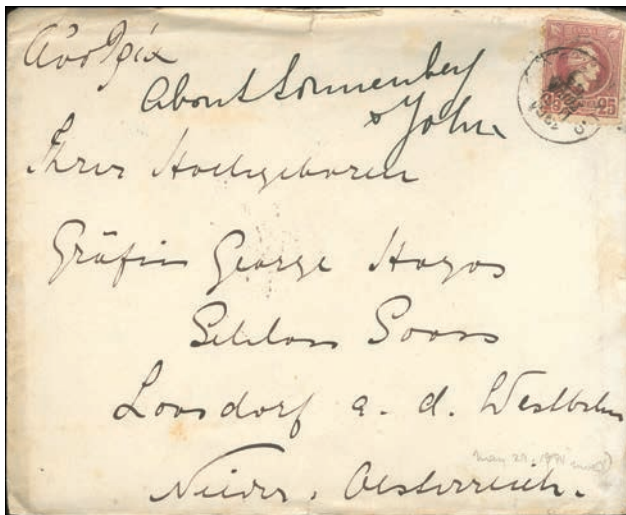 Αυστρία
About Sonnenberg
& John
Ihrer Hochgeboren
Gräfin George Hoyos
Schloss Sooss
Loosdorf a. d. Westbahn
Nieder. Oesterreich.
25 25